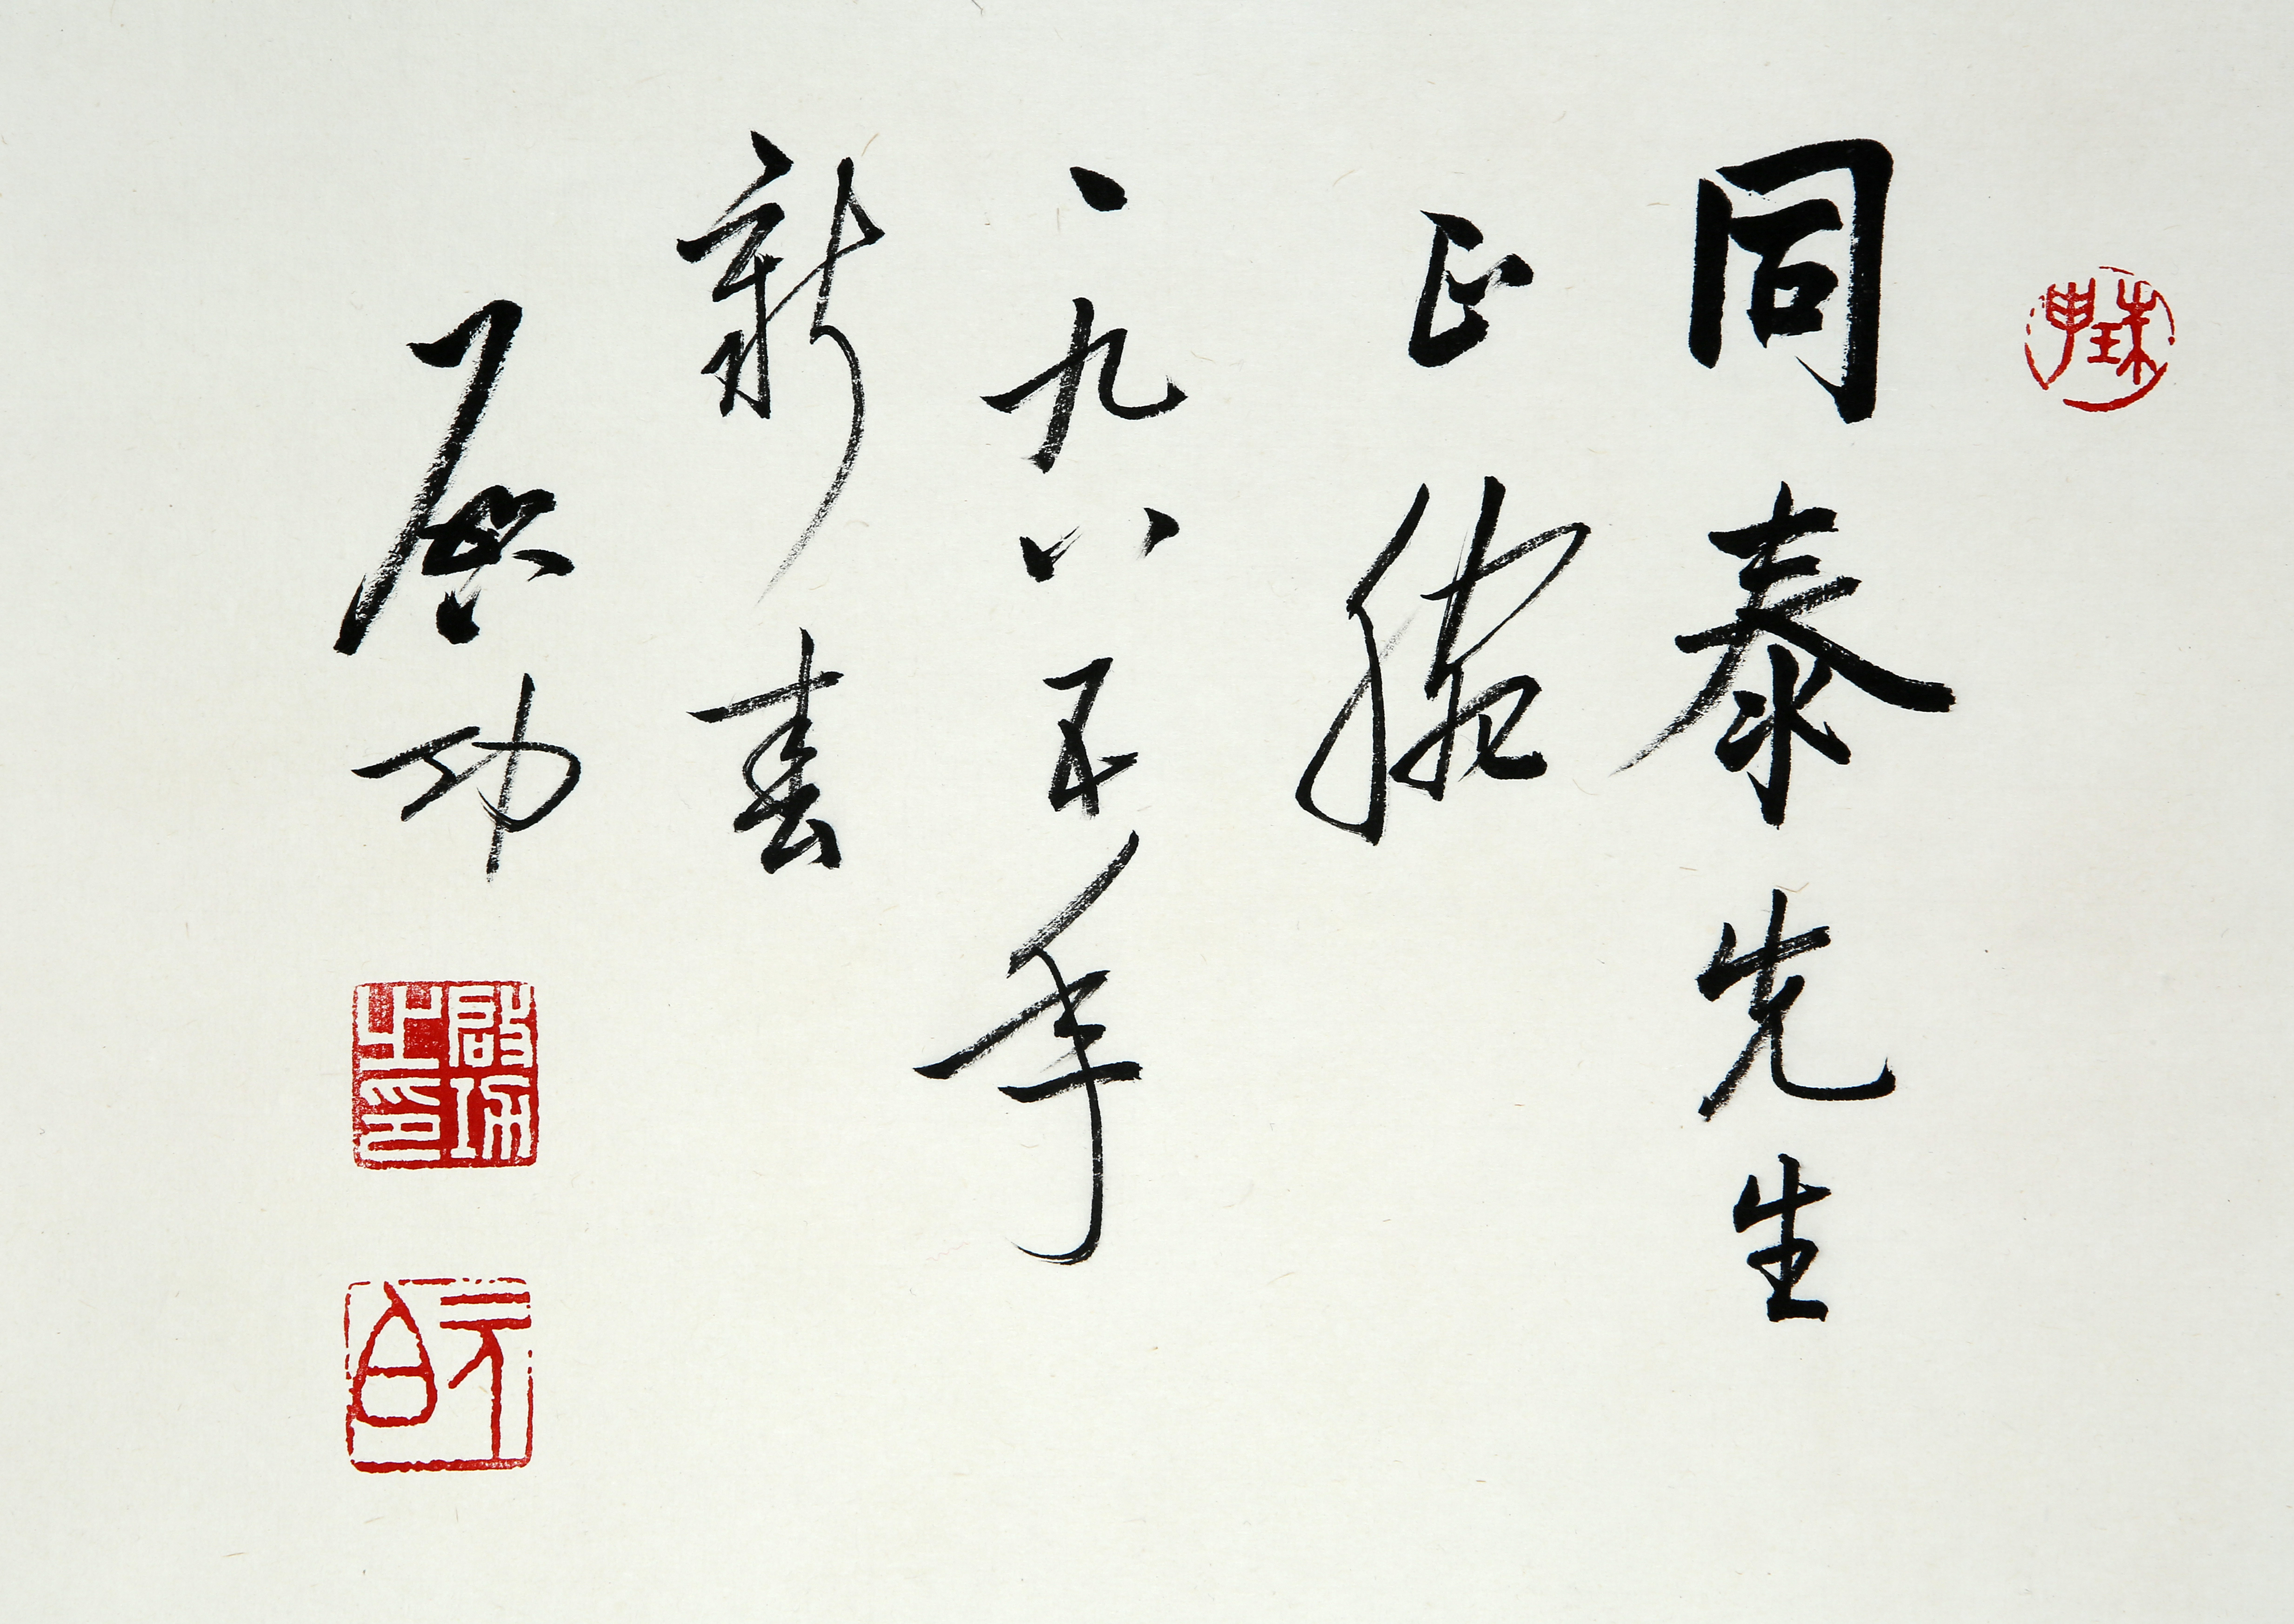 珠申
同泰先生
正腕
一九八五年
新春
启功
啟功之印
元白